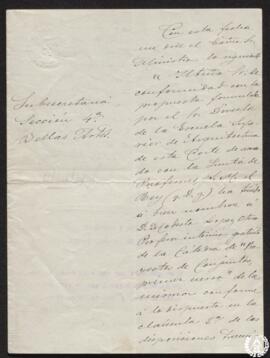 Con esta fecha
me dice el Señor
Ministro lo siguiente
"Ilmo. Sr. De
conformidad con la
propuesta formulada
por el Sr. Director
de la Escuela Supe-
rior de Arquitectura
de esta Corte de acuer-
do con la Junta de
Profesores, S. M. el
Rey (q. D. g.) ha tenido
a bien nombrar á
D. Modesto Lopez Otero
Profesor interino gratuito
de la Cátedra de "Pro-
yectos de Conjuntos,
primer curso" de la
misma conforme
á lo dispuesto en la
cláusula 2ª de las
disposiciones
Subsecretaria
Sección 4ª
Bellas Artes